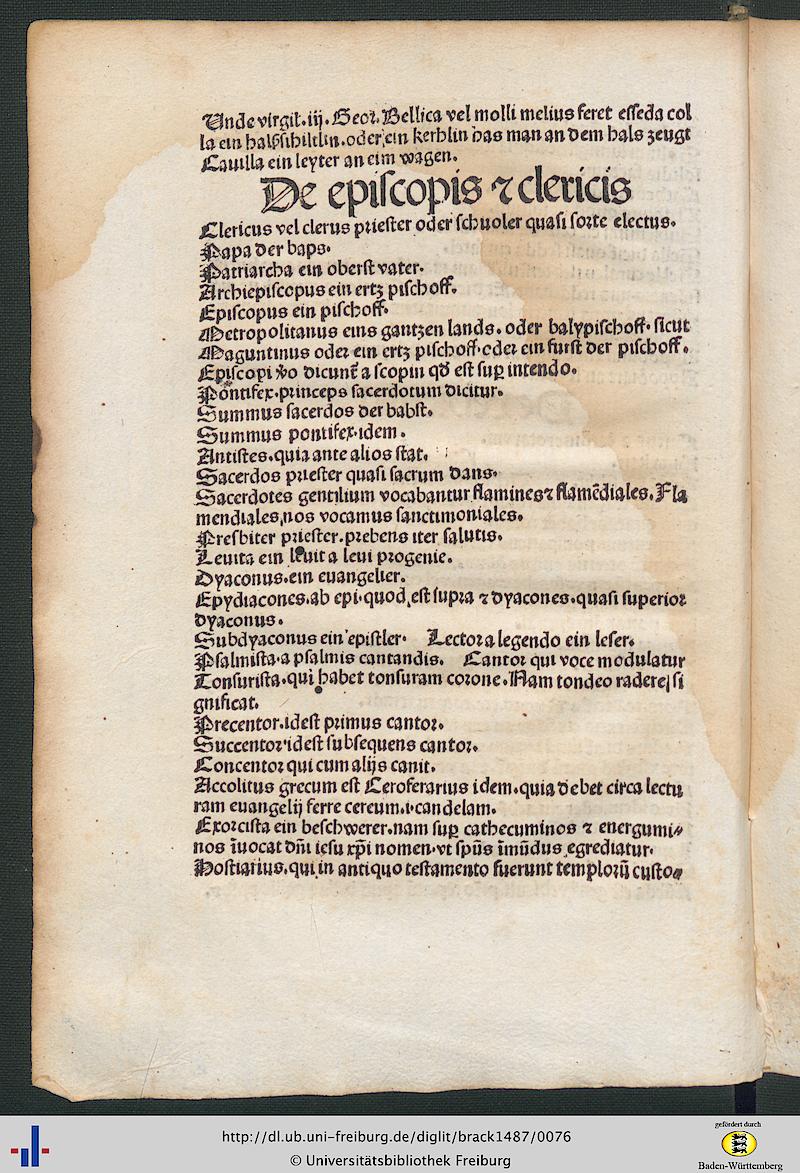 Unde virgil. iij. Geor. Bellica vel molli melius feret esseda col
la ein oder ein kerblin das man an dem hals zeugt
Cauilla ein leyter an eim wagen.
De episcopis ⁊ clericis
Clericus vel clerus priester oder schuoler quasi sorte electus.
Papa der baps.
Patriarcha ein oberst vater.
Archiepiscopus ein ertz pischoff.
Episcopus ein pischoff.
Metropolitanus eins gantzen lands. oder balypischoff. sicut
Maguntinus oder ein ertz pischoff. oder ein furst der pischoff.
Episcopi v̄o dicunt̄ a scopin qd̄ est sup̱ intendo.
Pontifex. princeps sacerdotum dicitur.
Summus sacerdos der babst.
Summus pontifex. idem.
Antistes. quia ante alios stat.
Sacerdos priester quasi sacrum dans.
Sacerdotes gentilium vocabantur flamines ⁊ flamēdiales. Fla
mendiales, nos vocamus sanctimoniales.
Presbiter priester. prebens iter salutis.
Leuita ein leuit a leui progenie.
Dyaconus. ein euangelier.
Epydiacones. ab epi. quod est supra ⁊ dyacones. quasi superior
dyaconus.
Subdyaconus ein epistler. Lector a legendo ein leser.
Psalmista. a psalmis cantandis. Cantor qui voce modulatur
Tonsurista. qui habet tonsuram corone. Nam tondeo radere, si
gnificat.
Precentor. idest primus cantor.
Succentor idest subsequens cantor.
Concentor qui cum alijs canit.
Accolitus grecum est Ceroferarius idem. quia debet circa lectu
ram euangelij ferre cereum. i. candelam.
Exorcista ein beschwerer. nam sup̱ cathecuminos ⁊ energumi⸗
nos īuocat dn̄i iesu xp̄i nomen. vt spūs īmūdus egrediatur.
Hostiarius. qui in antiquo testamento fuerunt templorū custo⸗
http://dl.ub.uni-freiburg.de/diglit/brack1487/0076
© Universitätsbibliothek Freiburg
gefördert durch
Baden-Württemberg